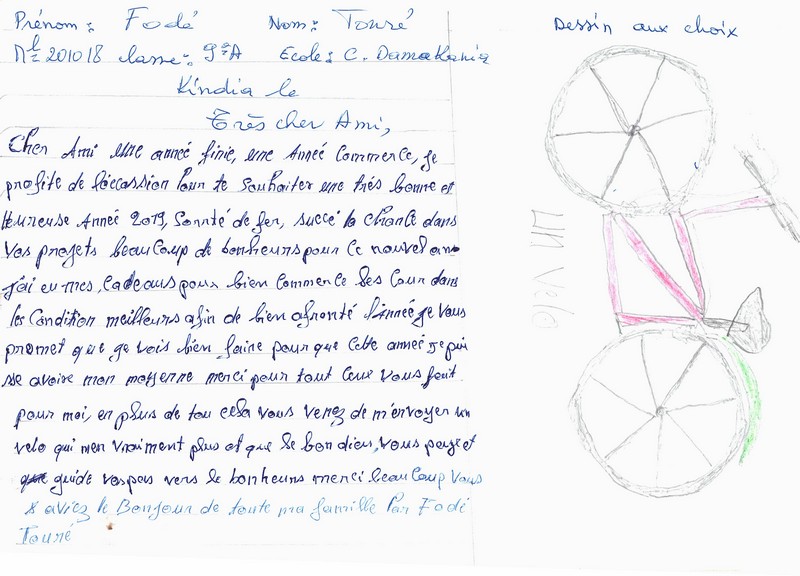 Prénom : Fodé Nom : Touré
Nº 201018 classe : 9ºA Ecole : C. Damakania
Kindia le
Très cher Ami,
Cher Ami une anneé finie, une Année Commerce, Je
profite de l'éccassion pour te Souhaiter une trés bonne et
Heureuse Année 2019, Sonnté de fer, succé la chance dans
Vos projets beauCoup de bonheurs pour ce nouvel ans
J'ai eu mes, cadeaus pour bien Commence les Cour dans
les Condition meilleurs afin de bien afronté l'Année je vous
promet que je vois bien faire pour que Cette anneé je puis
sse avoire mon moyenne merci pour tout Ceux vous fait
pour moi, en plus de tou cela vous venez de m'envoyer un
velo qui men vraiment plus et que le bon dieu, vous paye et
guide vos pas vers le bonheurs merci beauCoup Vous
aviez le Bonjour de toute ma famille Par Fodé
Touré
Dessin aux choix
UN velo